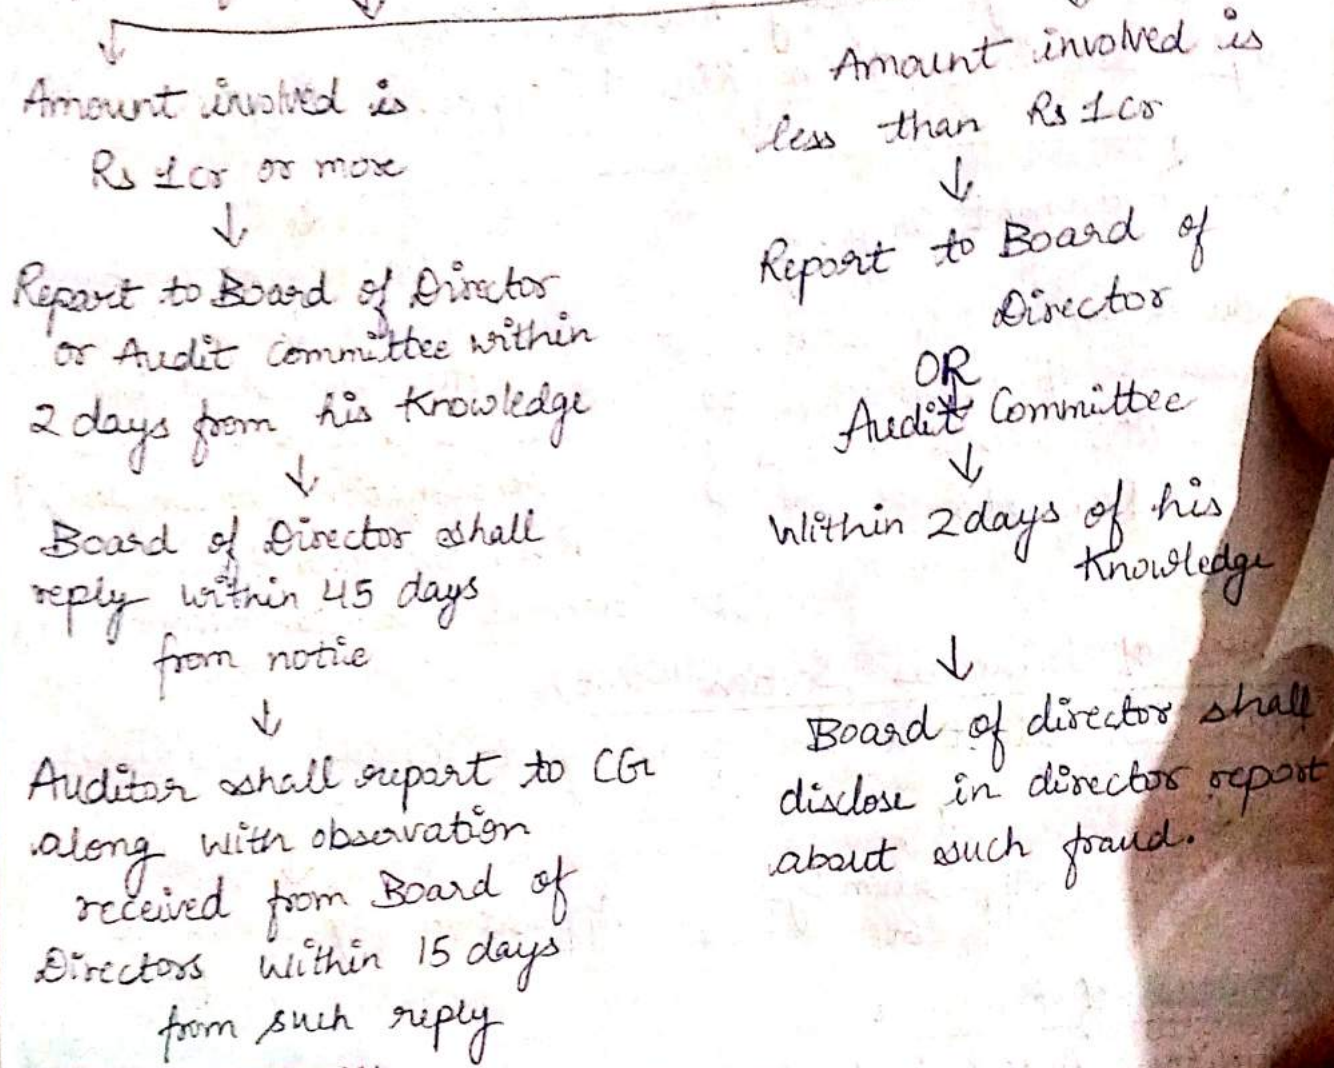 Amount involved is
Rs 1cr or more
↓
Report to Board of Director
or Audit Committee within
2 days from his Knowledge
↓
Board of Director shall
reply within 45 days
from notice
↓
Auditor shall report to CG
along with observation
received from Board of
Directors within 15 days
from such reply
Amount involved is
less than Rs 1cr
↓
Report to Board of
Director
OR
Audit Committee
↓
Within 2 days of his
Knowledge
↓
Board of director shall
disclose in director report
about such fraud.